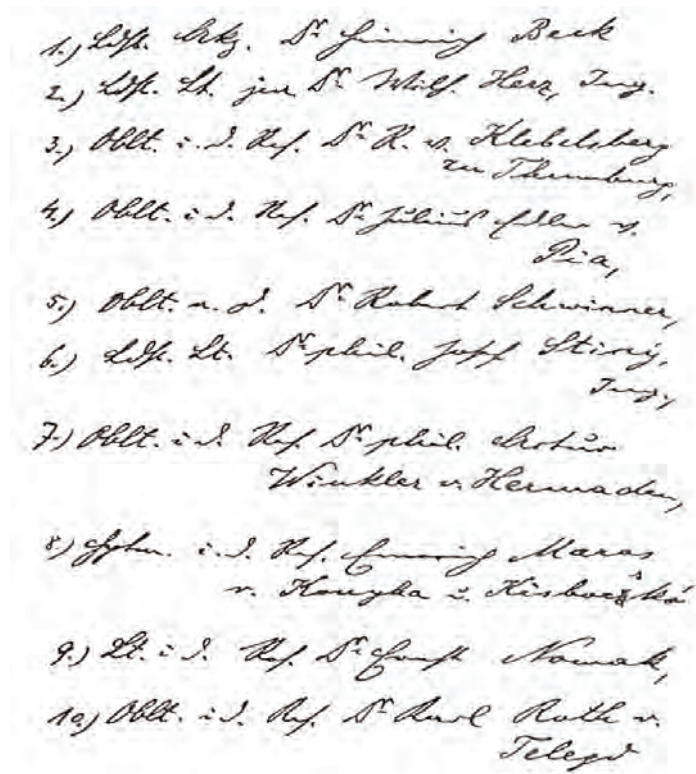 1.) Ldst. Dr Heinrich Beck
2.) Ldst. Lt. jur. Dr Wilf. Herz, Ing.
3.) Oblt. i. d. Res. Dr R. v. Klebelsberg
zu Thumburg,
4.) Oblt. i. d. Res. Dr Julius Edler v.
Pia,
5.) Oblt. a. D. Dr Robert Schwinner,
6.) Ldst. Lt. Dr phil. Josef Stiny,
Ing.,
7.) Oblt. i. d. Res. Dr phil. Artur
Winkler v. Hermaden,
8.) i. d. Res. Emmerich Maros
v. Konyha u. Kisbotskó
9.) Lt. i. d. Res. Dr Ernst Nowak,
10.) Oblt. i. d. Res. Dr Karl Roth v.
Telegd